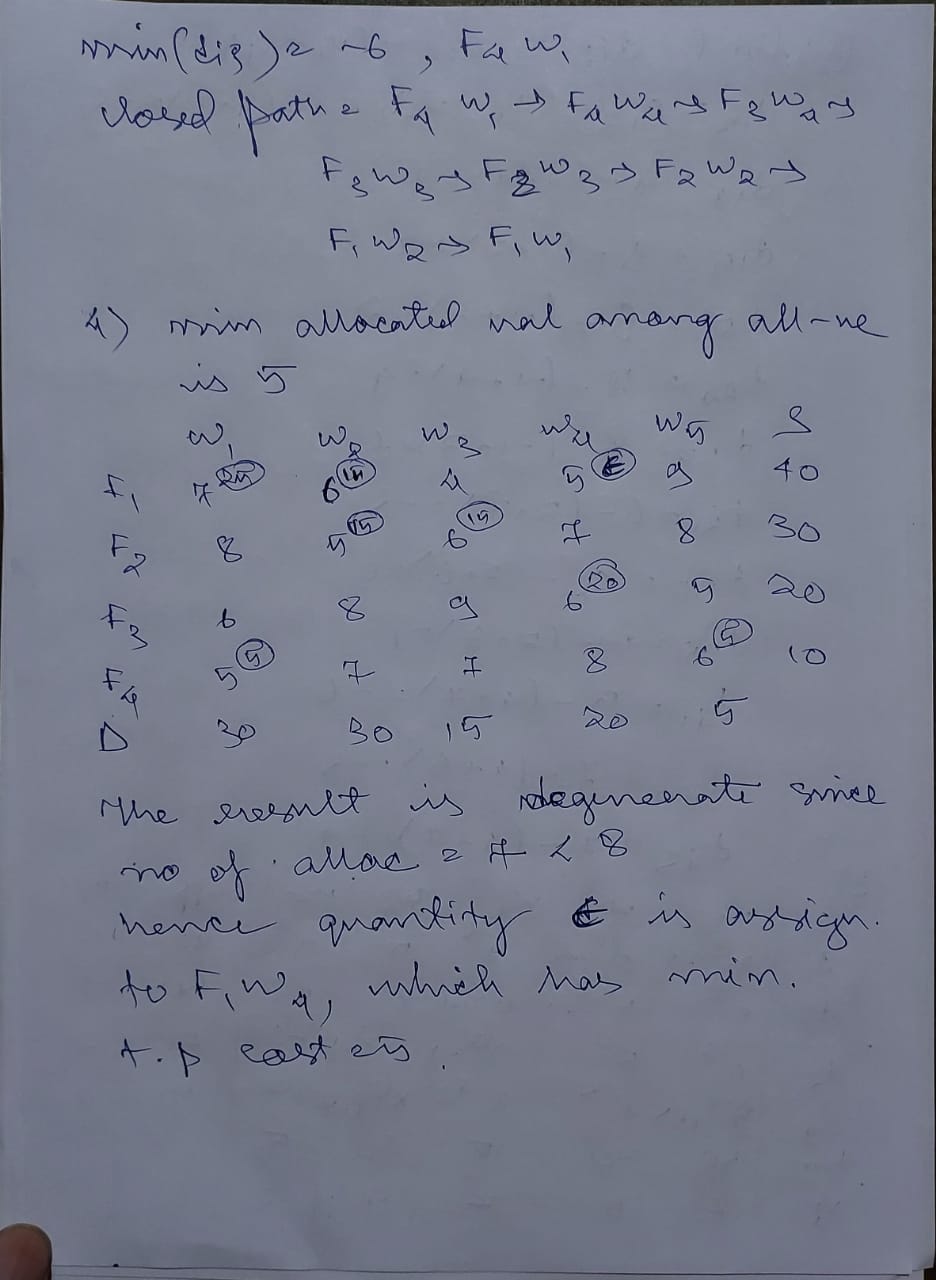 min(dij) = -6, F4 W1
closed path = F4 W1 → F4 W4 → F3 W4 →
F3 W3 → F2 W3 → F2 W2 →
F1 W2 → F1 W1
4) min allocated val among all -ve
is 5
W1 W2 W3 W4 W5 S
F1 7 (25) 6 (15) 4 5 (ε) 9 40
F2 8 5 (15) 6 (15) 7 8 30
F3 6 8 9 6 (20) 5 20
F4 5 (5) 7 7 8 6 (5) 10
D 30 30 15 20 5
The result is degenerate since
no of alloc = 7 < 8
hence quantity ε is assign.
to F1 W4, which has min.
t.p cost = 5.